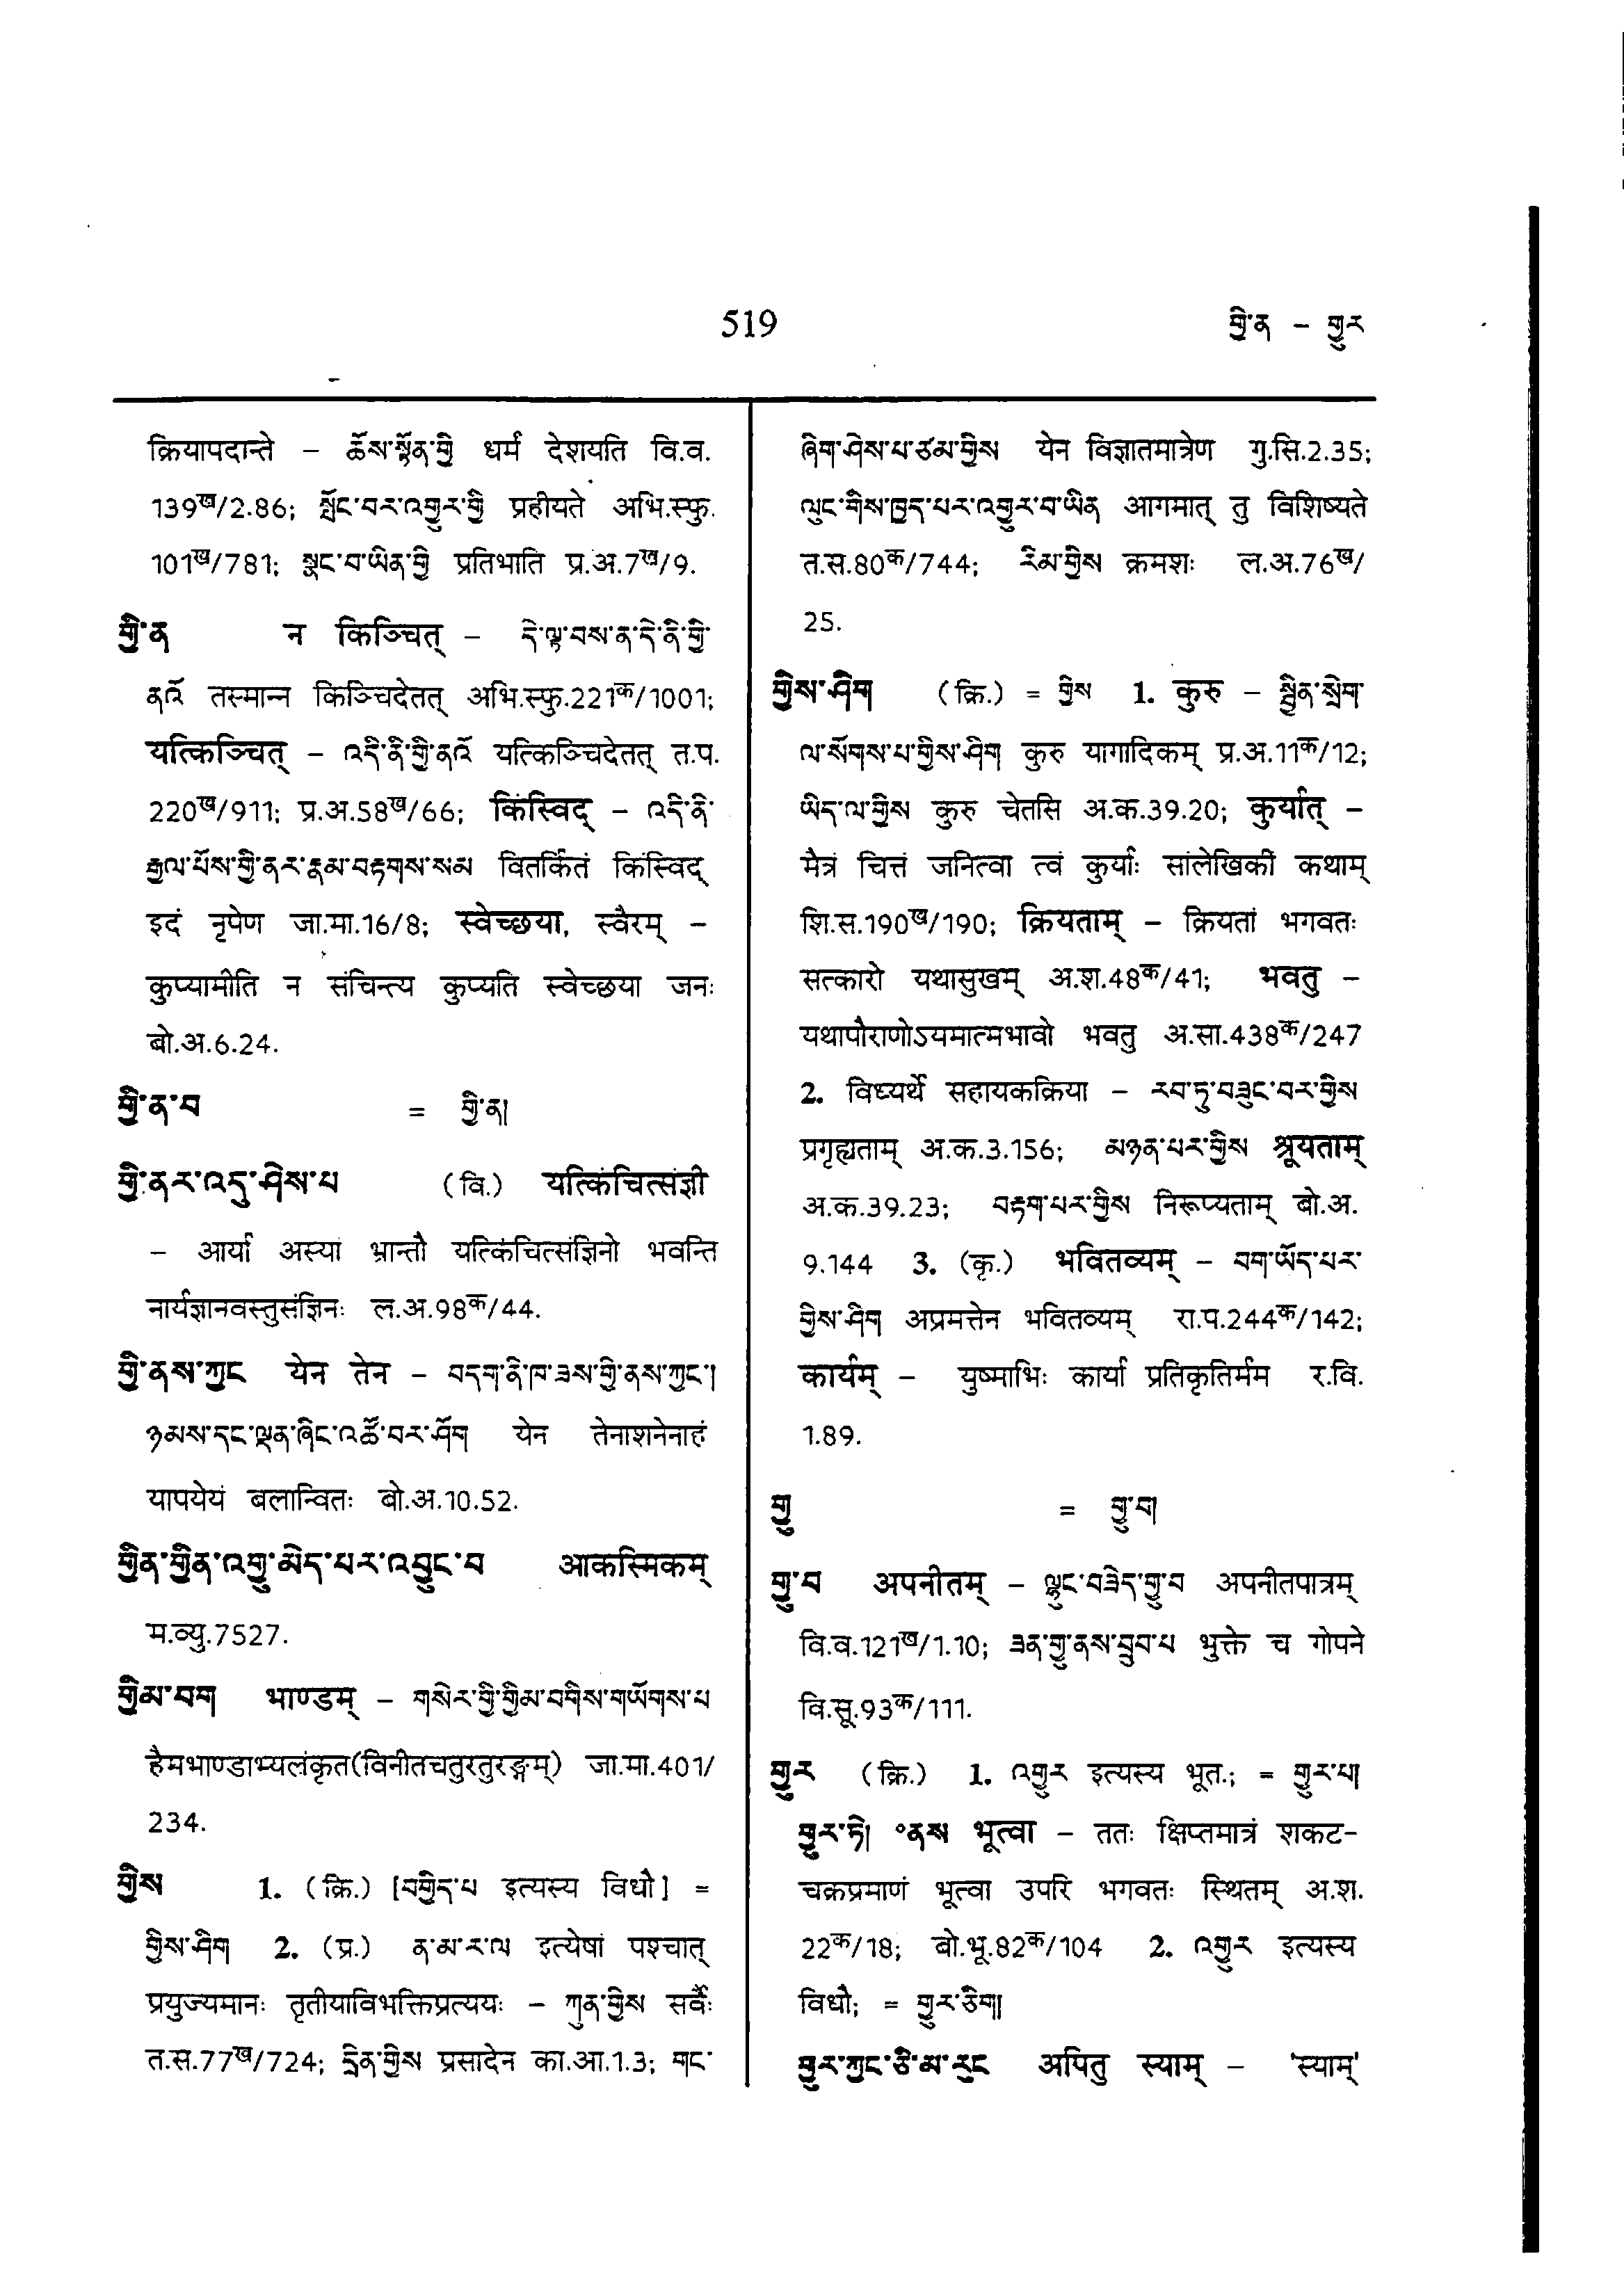 519
གྱི་ན – གྱུར
क्रियापदान्ते – ཆོས་སྟོན་གྱི धर्म देशयति वि.व.
139ख/2.86; སྤོང་བར་འགྱུར་གྱི प्रहीयते अभि.स्फु.
101ख/781; སྣང་བ་ཡིན་གྱི प्रतिभाति प्र.अ.7ख/9.
གྱི་ན न किञ्चित् – དེ་ལྟ་བས་ན་དེ་ནི་གྱི་
ནའོ तस्मान्न किञ्चिदेतत् अभि.स्फु.221क/1001;
यत्किञ्चित् – འདི་ནི་གྱི་ནའོ यत्किञ्चिदेतत् त.प.
220ख/911; प्र.अ.58ख/66; किंस्विद् – འདི་ནི་
རྒྱལ་པོས་གྱི་ནར་རྣམ་བརྟགས་སམ वितर्कितं किंस्विद्
इदं नृपेण जा.मा.16/8; स्वेच्छया, स्वैरम् –
कुप्यामीति न संचिन्त्य कुप्यति स्वेच्छया जनः
बो.अ.6.24.
གྱི་ན་བ = གྱི་ན།
གྱི་ནར་འདུ་ཤེས་པ (वि.) यत्किंचित्संज्ञी
– आर्या अस्यां भ्रान्तौ यत्किंचित्संज्ञिनो भवन्ति
नार्यज्ञानवस्तुसंज्ञिनः ल.अ.98क/44.
གྱི་ནས་ཀྱང येन तेन – བདག་ནི་ཁ་ཟས་གྱི་ནས་ཀྱང་།
ཉམས་དང་ལྡན་ཞིང་འཚོ་བར་ཤོག येन तेनाशनेनाहं
यापयेयं बलान्वितः बो.अ.10.52.
གྱིན་གྱིན་འགྱུ་མེད་པར་འབྱུང་བ आकस्मिकम्
म.व्यु.7527.
གྱིམ་བག भाण्डम् – གསེར་གྱི་གྱིམ་བགིས་གཡོགས་པ
हैमभाण्डाभ्यलंकृत(विनीतचतुरतुरङ्गम्) जा.मा.401/
234.
གྱིས 1. (क्रि.) [བགྱིད་པ इत्यस्य विधौ] =
གྱིས་ཤིག 2. (प्र.) ན་མ་ར་ལ इत्येषां पश्चात्
प्रयुज्यमानः तृतीयाविभक्तिप्रत्ययः – ཀུན་གྱིས सर्वैः
त.स.77ख/724; དྲིན་གྱིས प्रसादेन का.आ.1.3; གང་
ཞིག་ཤེས་པ་ཙམ་གྱིས येन विज्ञातमात्रेण गु.सि.2.35;
ལུང་གིས་ཁྱད་པར་འགྱུར་བ་ཡིན आगमात् तु विशिष्यते
त.स.80क/744; རིམ་གྱིས क्रमशः ल.अ.76ख/
25.
གྱིས་ཤིག (क्रि.) = གྱིས 1. कुरु – སྦྱིན་སྲེག་
ལ་སོགས་པ་གྱིས་ཤིག कुरु यागादिकम् प्र.अ.11क/12;
ཡིད་ལ་གྱིས कुरु चेतसि अ.क.39.20; कुर्यात् –
मैत्रं चित्तं जनित्वा त्वं कुर्याः सांलेखिकीं कथाम्
शि.स.190ख/190; क्रियताम् – क्रियतां भगवतः
सत्कारो यथासुखम् अ.श.48क/41; भवतु –
यथापौराणोऽयमात्मभावो भवतु अ.सा.438क/247
2. विध्यर्थे सहायकक्रिया – རབ་ཏུ་བཟུང་བར་གྱིས
प्रगृह्यताम् अ.क.3.156; མཉན་པར་གྱིས श्रूयताम्
अ.क.39.23; བརྟག་པར་གྱིས निरूप्यताम् बो.अ.
9.144 3. (कृ.) भवितव्यम् – བག་ཡོད་པར་
གྱིས་ཤིག अप्रमत्तेन भवितव्यम् रा.प.244क/142;
कार्यम् – युष्माभिः कार्या प्रतिकृतिर्मम र.वि.
1.89.
གྱུ = གྱུ་བ།
གྱུ་བ अपनीतम् – ལྷུང་བཟེད་གྱུ་བ अपनीतपात्रम्
वि.व.121ख/1.10; ཟན་གྱུ་ནས་བྱུབ་པ भुक्ते च गोपने
वि.सू.93क/111.
གྱུར (क्रि.) 1. འགྱུར इत्यस्य भूत.; = གྱུར་པ།
གྱུར་ཏེ། °ནས भूत्वा – ततः क्षिप्तमात्रं शकट-
चक्रप्रमाणं भूत्वा उपरि भगवतः स्थितम् अ.श.
22क/18; बो.भू.82क/104 2. འགྱུར इत्यस्य
विधौ; = གྱུར་ཅིག།
གྱུར་ཀྱང་ཅི་མ་རུང अपितु स्याम् – 'स्याम्'